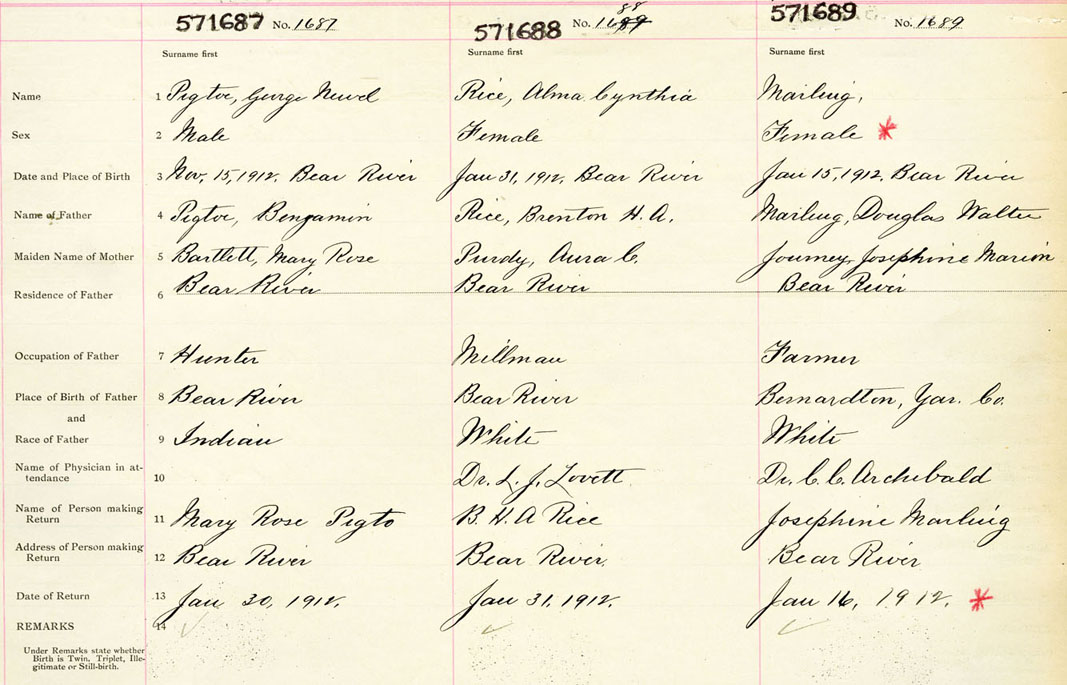 571687 No. 1687 571688 No. 1689 88 571689 No. 1689
Surname first Surname first Surname first
Name 1 Pigtoe, George Newel Rice, Alma Cynthia Marling,
Sex 2 Male Female Female *
Date and Place of Birth 3 Nov, 15, 1912. Bear River Jan 31, 1912, Bear River Jan 15, 1912, Bear River
Name of Father 4 Pigtoe, Bengamin Rice, Brenton H. A. Marling, Douglas Walter
Maiden Name of Mother 5 Bartlett, Mary Rose Purdy, Aura C. Journey, Josephine Marion
Residence of Father 6 Bear River Bear River Bear River
Occupation of Father 7 Hunter Millman Farmer
Place of Birth of Father 8 Bear River Bear River Bernardton, Yar. Co.
and
Race of Father 9 Indian White White
Name of Physician in at-
tendance 10 Dr. L. J. Lovett Dr. C. C. Archibald
Name of Person making
Return 11 Mary Rose Pigto B. H. A Rice Josephine Marling
Address of Person making
Return 12 Bear River Bear River. Bear River
Date of Return 13 Jan 30, 1912. Jan 31, 1912. Jan 16, 1912. *
REMARKS 14
Under Remarks state whether
Birth is Twin, Triplet, Ille-
gitimate or Still-birth.